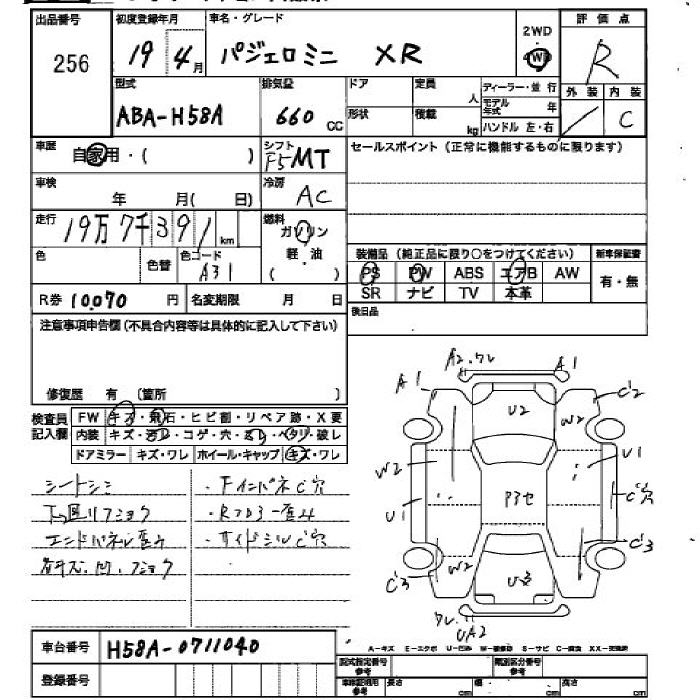 出品番号 初度登録年月 車名・グレード 2WD 評価点
256 19年4月 パジェロミニ XR 4WD R
型式 排気量 ドア 定員 人 ディーラー・並行 外装 内装
ABA-H58A 660cc 形状 積載 kg モデル年式 年 / C
ハンドル 左・右
車歴 自家用・( ) シフト F5MT セールスポイント(正常に機能するものに限ります)
車検 年 月(日) 冷房 AC
走行 19万7千391km 燃料 ガソリン
軽・油
( )
色 色替 色コード A31
装備品(純正品に限り○をつけてください) 新車保証書
PS PW ABS エアB AW 有・無
SR ナビ TV 本革
R券 10,070円 名変期限 月 日 後日品
注意事項申告欄(不具合内容等は具体的に記入して下さい)
修復歴 有(箇所 )
検査員記入欄 FW キズ・飛石・ヒビ割・リペア跡・X要
内装 キズ・汚レ・コゲ・穴・スレ・ヘタリ・破レ
ドアミラー キズ・ワレ ホイール・キャップ キズ・ワレ
シートシミ ・FインパネC穴
下廻リフショク
エンドパネル歪み ・サイドシルC穴
A2.ワレ A1
A1 C2
U2 W2
W2 U1
U1 P3セ C穴
W2 C3
C3
UA2
車台番号 H58A-0711040
登録番号
A-キズ E-エクボ U-凹み W-補修跡 S-サビ C-腐食 XX-交換済
型式指定番号 参考 類別区分番号 参考
車検証明用 参考 長さ cm 幅 cm 高さ cm